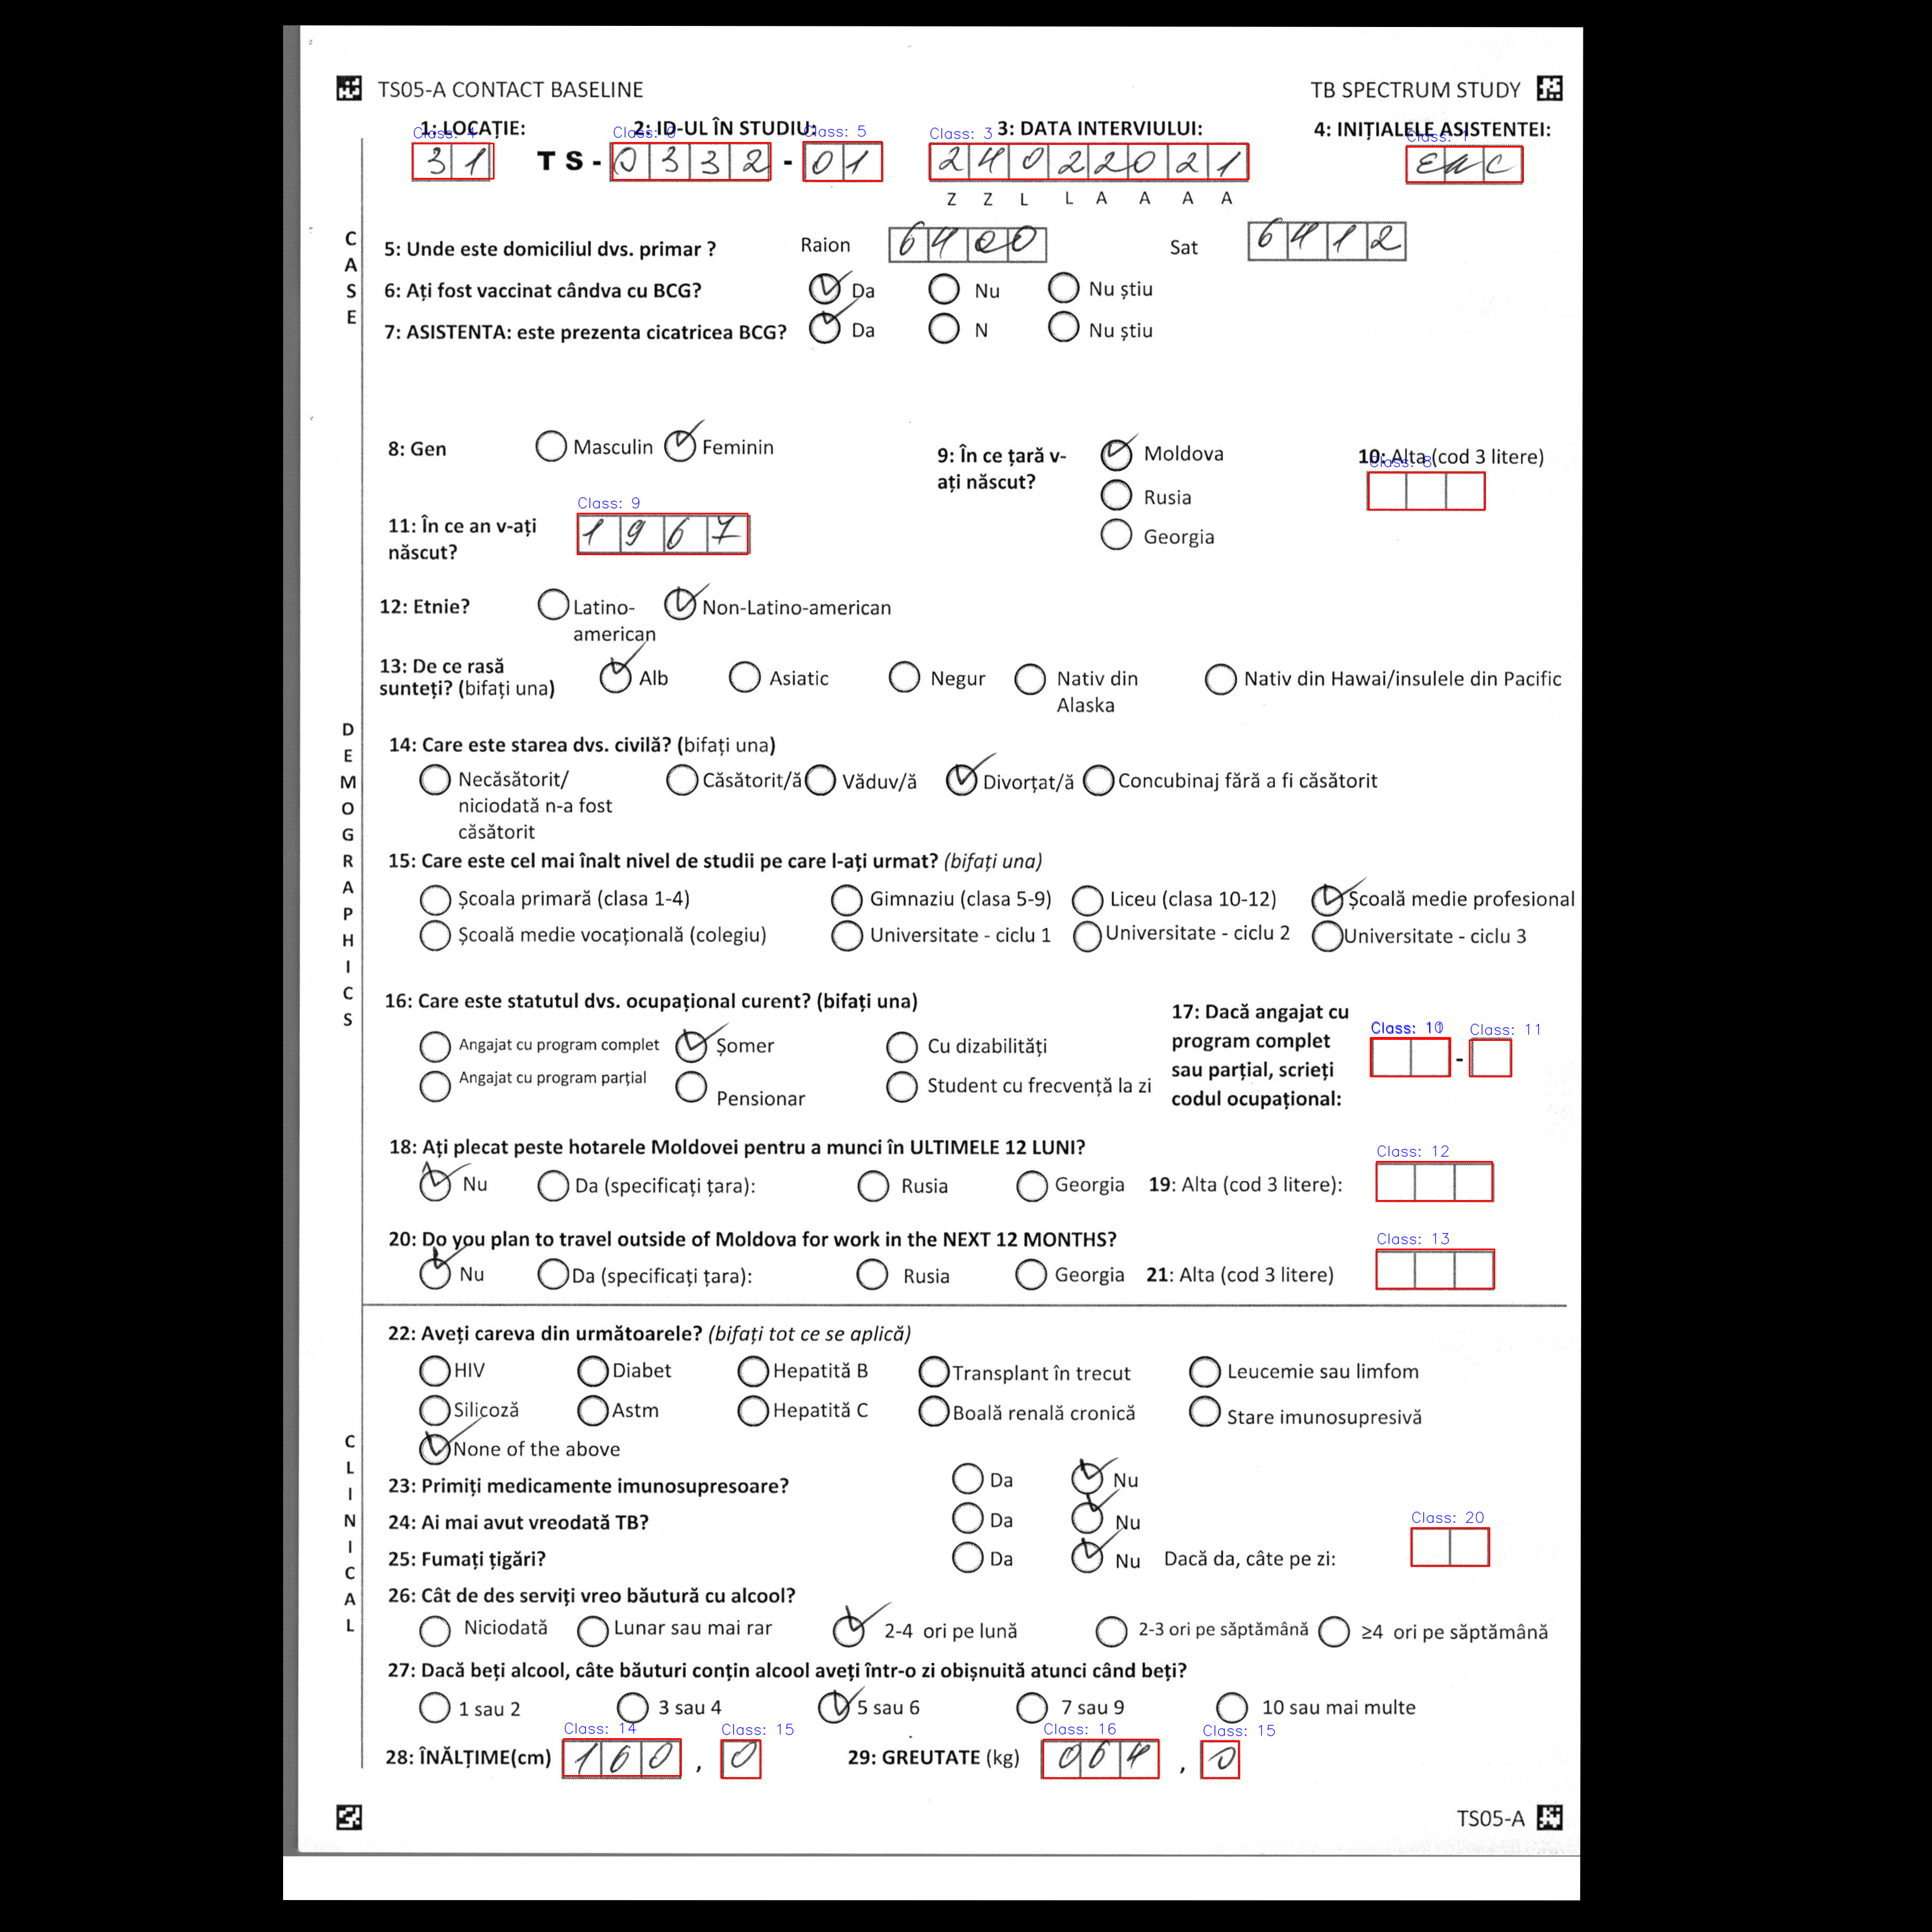 TS05-A CONTACT BASELINE TB SPECTRUM STUDY
1: LOCAȚIE: 2: ID-UL ÎN STUDIU: 3: DATA INTERVIULUI: 4: INIȚIALELE ASISTENTEI:
Class: 4 Class: 5 Class: 3
31 TS-0332-01 24022021
Z Z L L A A A A
CASE
5: Unde este domiciliul dvs. primar ? Raion 6400 Sat 6412
6: Ați fost vaccinat cândva cu BCG? Da Nu Nu știu
7: ASISTENTA: este prezenta cicatricea BCG? Da N Nu știu
8: Gen Masculin Feminin
9: În ce țară v-
ați născut?
Moldova
Rusia
Georgia
10: Alta (cod 3 litere)
Class: 8
Class: 9
11: În ce an v-ați
născut?
1967
12: Etnie? Latino-
american
Non-Latino-american
13: De ce rasă
sunteți? (bifați una)
Alb Asiatic Negur Nativ din
Alaska
Nativ din Hawai/insulele din Pacific
DEMOGRAPHICS
14: Care este starea dvs. civilă? (bifați una)
Necăsătorit/
niciodată n-a fost
căsătorit
Căsătorit/ă Văduv/ă Divorțat/ă Concubinaj fără a fi căsătorit
15: Care este cel mai înalt nivel de studii pe care l-ați urmat? (bifați una)
Școala primară (clasa 1-4) Gimnaziu (clasa 5-9) Liceu (clasa 10-12) Școală medie profesional
Școală medie vocațională (colegiu) Universitate - ciclu 1 Universitate - ciclu 2 Universitate - ciclu 3
16: Care este statutul dvs. ocupațional curent? (bifați una)
Angajat cu program complet Șomer Cu dizabilități
Angajat cu program parțial Pensionar Student cu frecvență la zi
17: Dacă angajat cu
program complet
sau parțial, scrieți
codul ocupațional:
Class: 11
-
18: Ați plecat peste hotarele Moldovei pentru a munci în ULTIMELE 12 LUNI?
Class: 12
Nu Da (specificați țara): Rusia Georgia 19: Alta (cod 3 litere):
20: Do you plan to travel outside of Moldova for work in the NEXT 12 MONTHS?
Class: 13
Nu Da (specificați țara): Rusia Georgia 21: Alta (cod 3 litere)
CLINICAL
22: Aveți careva din următoarele? (bifați tot ce se aplică)
HIV Diabet Hepatită B Transplant în trecut Leucemie sau limfom
Silicoză Astm Hepatită C Boală renală cronică Stare imunosupresivă
None of the above
23: Primiți medicamente imunosupresoare? Da Nu
24: Ai mai avut vreodată TB? Da Nu
Class: 20
25: Fumați țigări? Da Nu Dacă da, câte pe zi:
26: Cât de des serviți vreo băutură cu alcool?
Niciodată Lunar sau mai rar 2-4 ori pe lună 2-3 ori pe săptămână ≥4 ori pe săptămână
27: Dacă beți alcool, câte băuturi conțin alcool aveți într-o zi obișnuită atunci când beți?
1 sau 2 3 sau 4 5 sau 6 7 sau 9 10 sau mai multe
Class: 14 Class: 15 Class: 16 Class: 15
28: ÎNĂLȚIME(cm) 160 , 0 29: GREUTATE (kg) 064 , 0
TS05-A